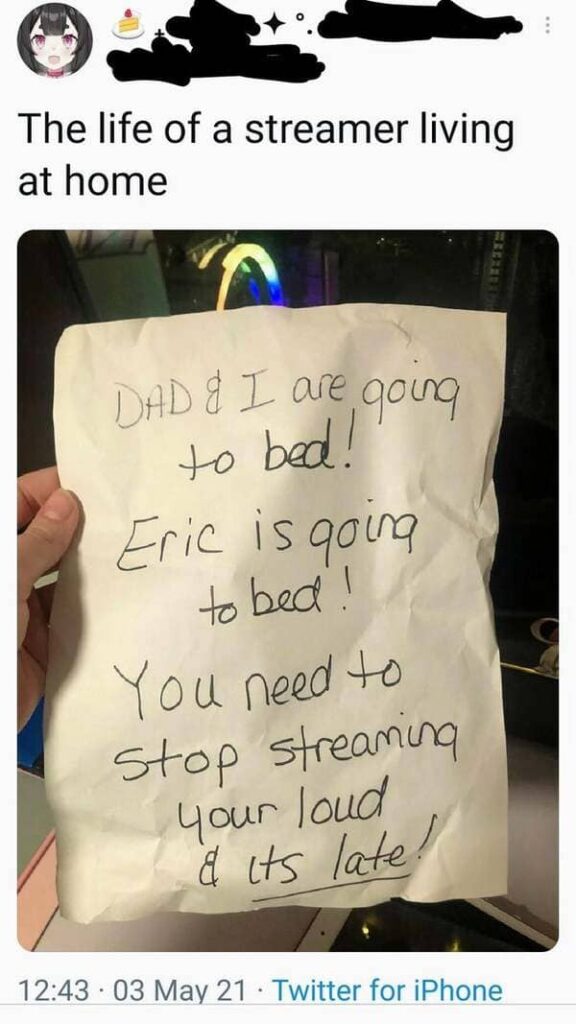 The life of a streamer living
at home
DAD & I are going
to bed!
Eric is going
to bed!
You need to
stop streaming
your loud
& its late!
12:43 · 03 May 21 · Twitter for iPhone